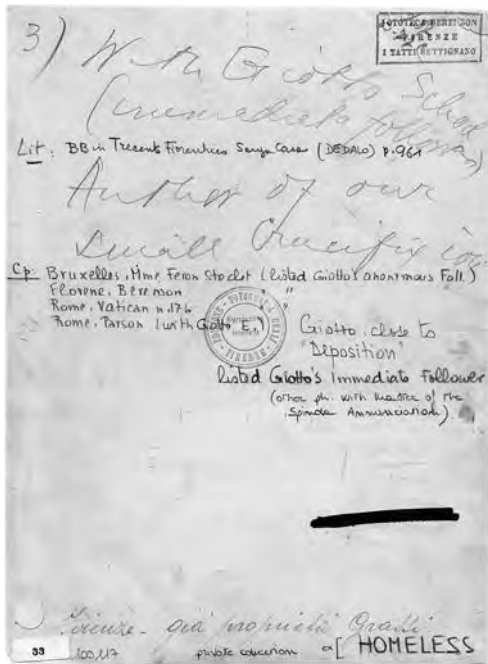 3) With Giotto School
(immediate follower)
FOTOTECA BERENSON
FIRENZE
I TATTI SETTIGNANO
Lit: BB in Trecentisti Fiorentini Senza Casa (DEDALO) p. 961
Author of our
small Crucifixion
Cp: Bruxelles, Mme Feron Stoclet (listed Giotto's anonymous Foll.)
Florence, Berenson " "
Rome, Vatican n. 176
Rome, Parson (with Giotto E.)
Giotto, close to
"Deposition"
listed Giotto's Immediate Follower
(other ph. with Master of the
Spinola Annunciation)
Firenze - già proprietà Grassi
33
100,117
private collection
[HOMELESS